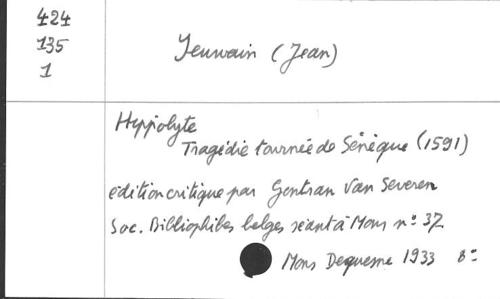 424
135
1
Yeuwain (Jean)
Hippolyte
Tragédie tournée de Sénèque (1591)
edition critique par Gontran Van Severen
Soc. Bibliophiles belges séant à Mons nº 37
Mons Dequesne 1933 8º